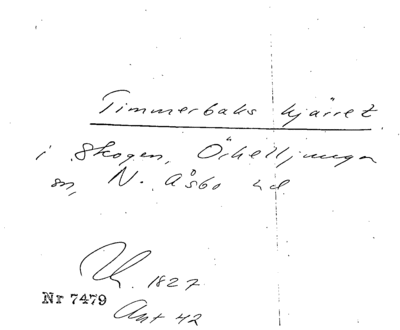 Timmerbaks kjärret
i Skogen, Örkelljunga
sn, N. Åsbo hd
1827
Nr 7479
Akt 42